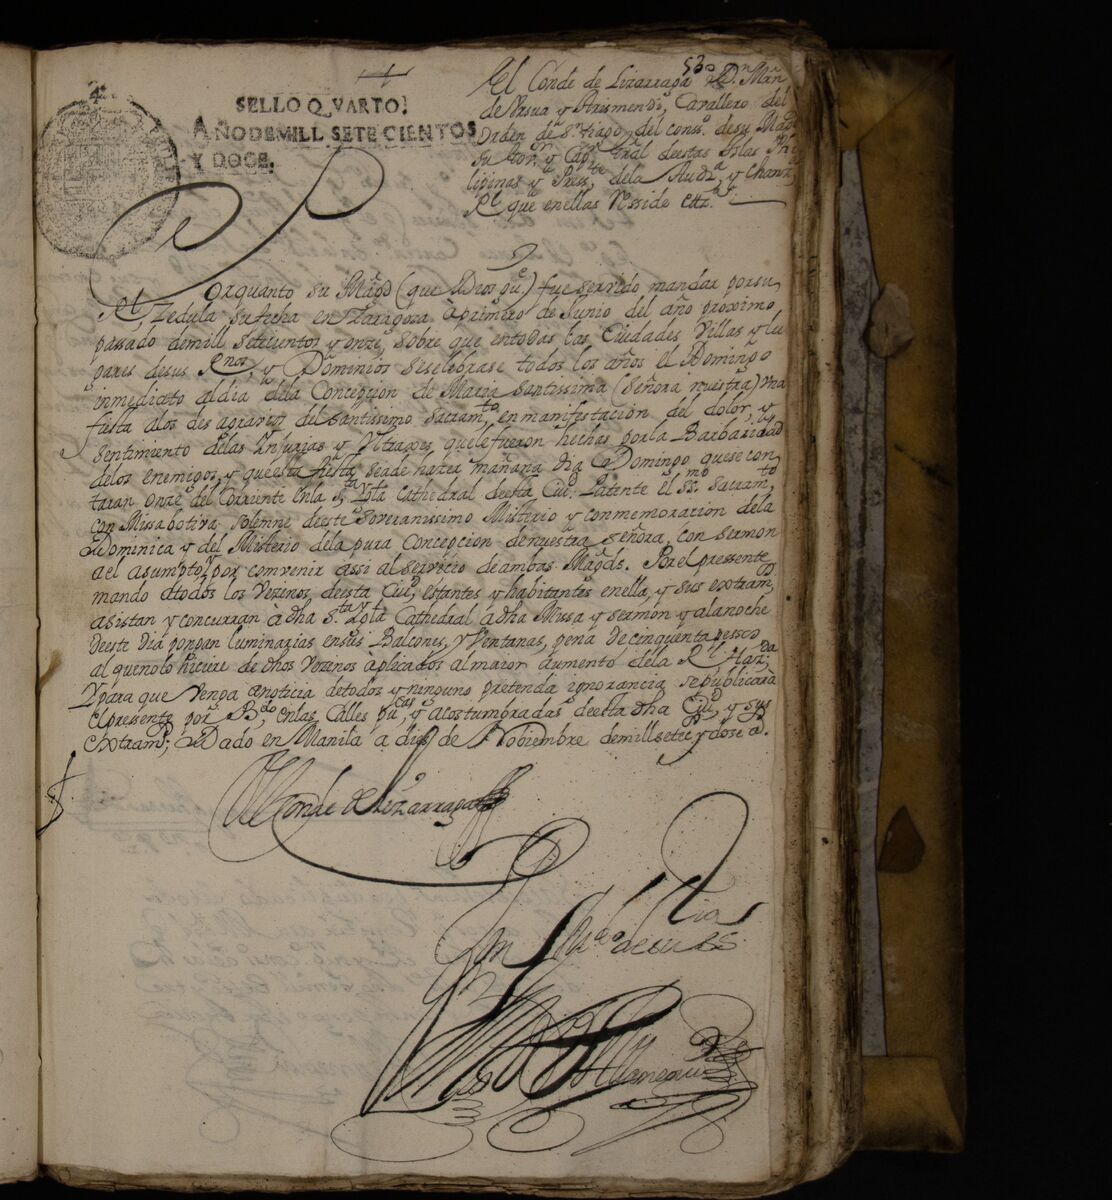 530
4º
SELLO QVARTO,
AÑO DE MILL SETECIENTOS
Y DOCE.
El Conde de Lizarraga Dn Mrn
de Vrsua y Arismendi, Cavallero del
Orden de Stiago, del conso. de su Magd
su Gor. y Capn Gral de estas Islas Phi
lipinas y Presste dela Audza. y Chanza
Rl que en ellas Resside ettza.
Porquanto su Magd (que Dios ge) fue servido mandar por su
Rl Zedula su fecha en Zaragosa à primero de Junio del año proximo
passado de mill setecientos y onze, sobre que en todas las Ciudades Villas y lu
gares de sus Rnos, y Dominios se selebrase todos los años el Domingo
inmediato al dia dela Concepcion de Maria Santissima (Señora nuestra) Vna
fiesta alos desagravios del santissimo Sacramto, en manifestacion del dolor, y
sentimiento delas Injurias y Vltraxes, que le fueron hechas por la Barbaridad
delos enemigos, y que esta fiesta se ade hazer mañana dia Domingo que se con
taran onze del Corriente en la Sta Ygla Cathedral de esta Ciud. Patente el SSmo. Sacramto
con Missa botiva solemne de este Soveranissimo Misterio y conmemoracion dela
Dominica y del Misterio dela pura Concepcion de nuestra Señora, con sermon
a el asumpto, y por comvenir assi al servicio de ambas Magds. Por el pressente
mando atodos los Vezinos de esta Ciud, estantes y habitantes en ella, y sus extram
asistan y concurran à dha Sta Ygla Cathedral à dha Missa y sermon y ala noche
de este dia pongan luminarias en sus Balcones, y Ventanas, pena de cinquenta pessos
al que no lo hiciere de dhos Vezinos aplicados al maior aumento dela Rl Hazda
Y para que venga anoticia de todos y ninguno pretenda ignorancia se publicarà
el pressente por Bdo, en las Calles pucas, y acostumbradas de esta dha Ciud y sus
extram; Dado en Manila à dies de Nobiembre de mill sete. y dose as.
El Conde de Lizarraga
Por mdo de su Sª